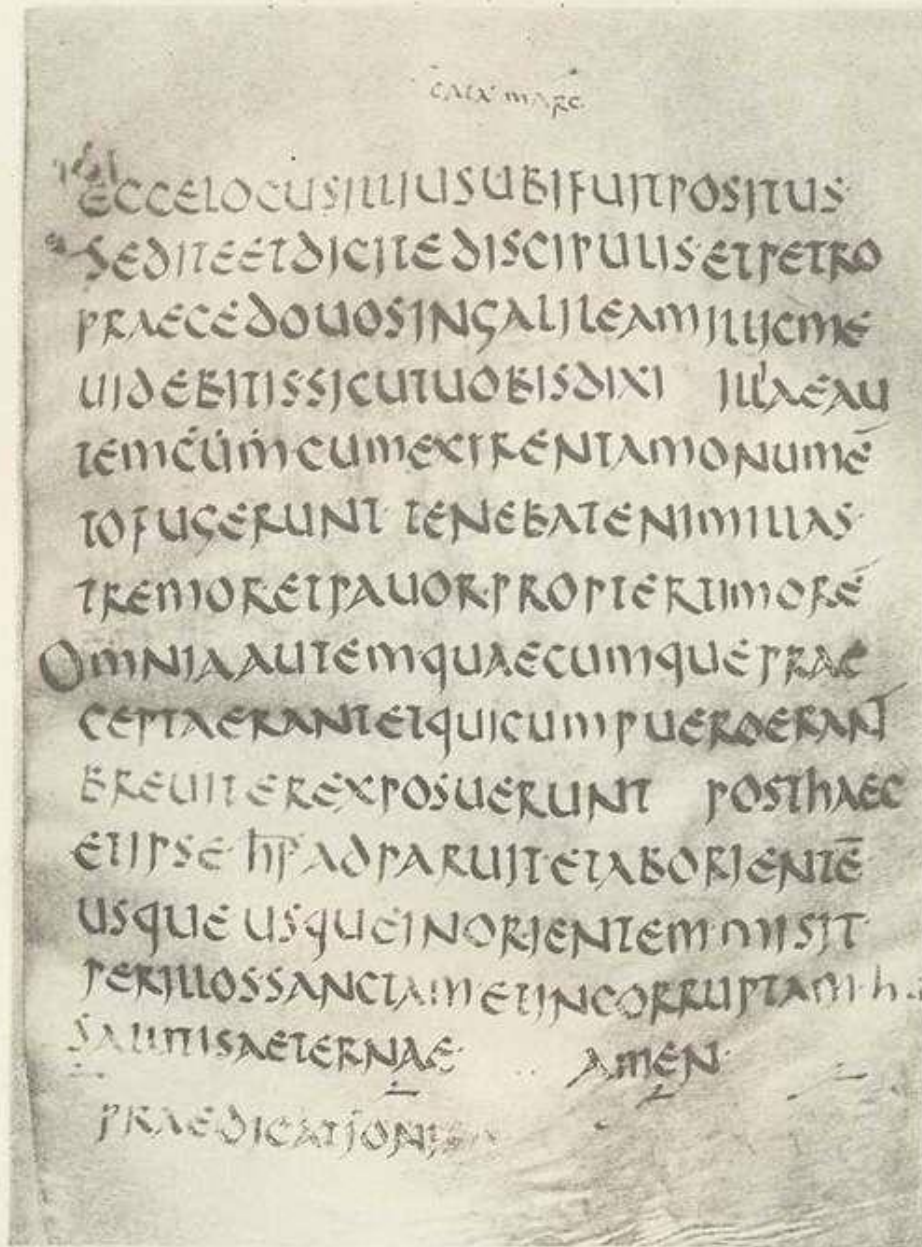 CATA MARC
ECCELOCUSILLIUSUBIFUITPOSITUS
SEDITEETDICITEDISCIPULIS·ETPETRO
PRAECEDOUOSINGALILEAMILLICME
UIDEBITISSICUTUOBISDIXI ILLAEAU
TEMCUMCUMEXIRENTAMONUMĒ
TOFUGERUNT TENEBATENIMILLAS
TREMORETPAUOR·PROPTERTIMORĒ
OMNIAAUTEMQUAECUMQUEPRAE
CEPTAERANTETQUICUMPUEROERANT
BREUITEREXPOSUERUNT POSTHAEC
ETIPSE hIP̅ ADPARUIT·ETABORIENTĒ
USQUE USQUEINORIENTEM MISIT
PERILLOSSANCTAMETINCORRUPTAM·h·
SALUTISAETERNAE· AMEN·
PRAEDICATIONIS